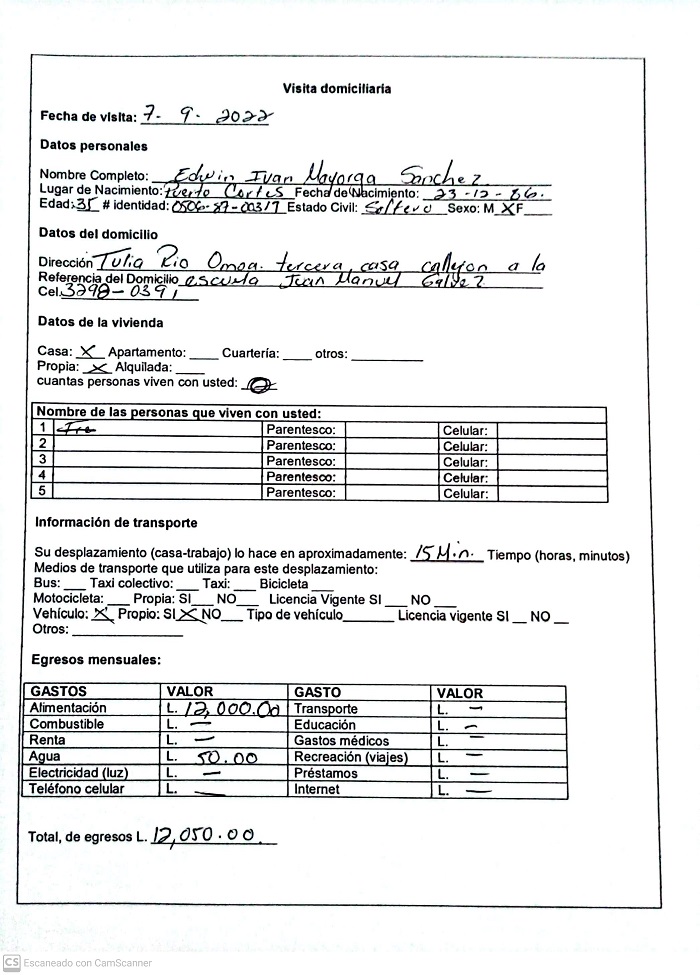 Visita domiciliaria
Fecha de visita: 7. 9. 2022
Datos personales
Nombre Completo: Edwin Ivan Mayorga Sanchez
Lugar de Nacimiento: Puerto Cortes Fecha de Nacimiento: 23-12-86.
Edad: 35 # identidad: 0506-87-00317 Estado Civil: Soltero Sexo: M X F___
Datos del domicilio
Dirección Tulia Rio Omoa. tercera casa callejon a la
Referencia del Domicilio escuela Juan Manuel Galvez
Cel. 3298-0391
Datos de la vivienda
Casa: X Apartamento: ____ Cuartería: ____ otros: __________
Propia: X Alquilada: ____
cuantas personas viven con usted:
Nombre de las personas que viven con usted:
1 Parentesco: Celular:
2 Parentesco: Celular:
3 Parentesco: Celular:
4 Parentesco: Celular:
5 Parentesco: Celular:
Información de transporte
Su desplazamiento (casa-trabajo) lo hace en aproximadamente: 15 Min. Tiempo (horas, minutos)
Medios de transporte que utiliza para este desplazamiento:
Bus: ___ Taxi colectivo: ___ Taxi: ___ Bicicleta ___
Motocicleta: ___ Propia: SI___ NO___ Licencia Vigente SI ___ NO ___
Vehículo: X Propio: SI X NO___ Tipo de vehículo_______ Licencia vigente SI __ NO __
Otros: _______________
Egresos mensuales:
GASTOS VALOR GASTO VALOR
Alimentación L. 12,000.00 Transporte L. —
Combustible L. — Educación L. —
Renta L. — Gastos médicos L. —
Agua L. 50.00 Recreación (viajes) L. —
Electricidad (luz) L. — Préstamos L. —
Teléfono celular L. — Internet L. —
Total, de egresos L. 12,050.00
CS Escaneado con CamScanner